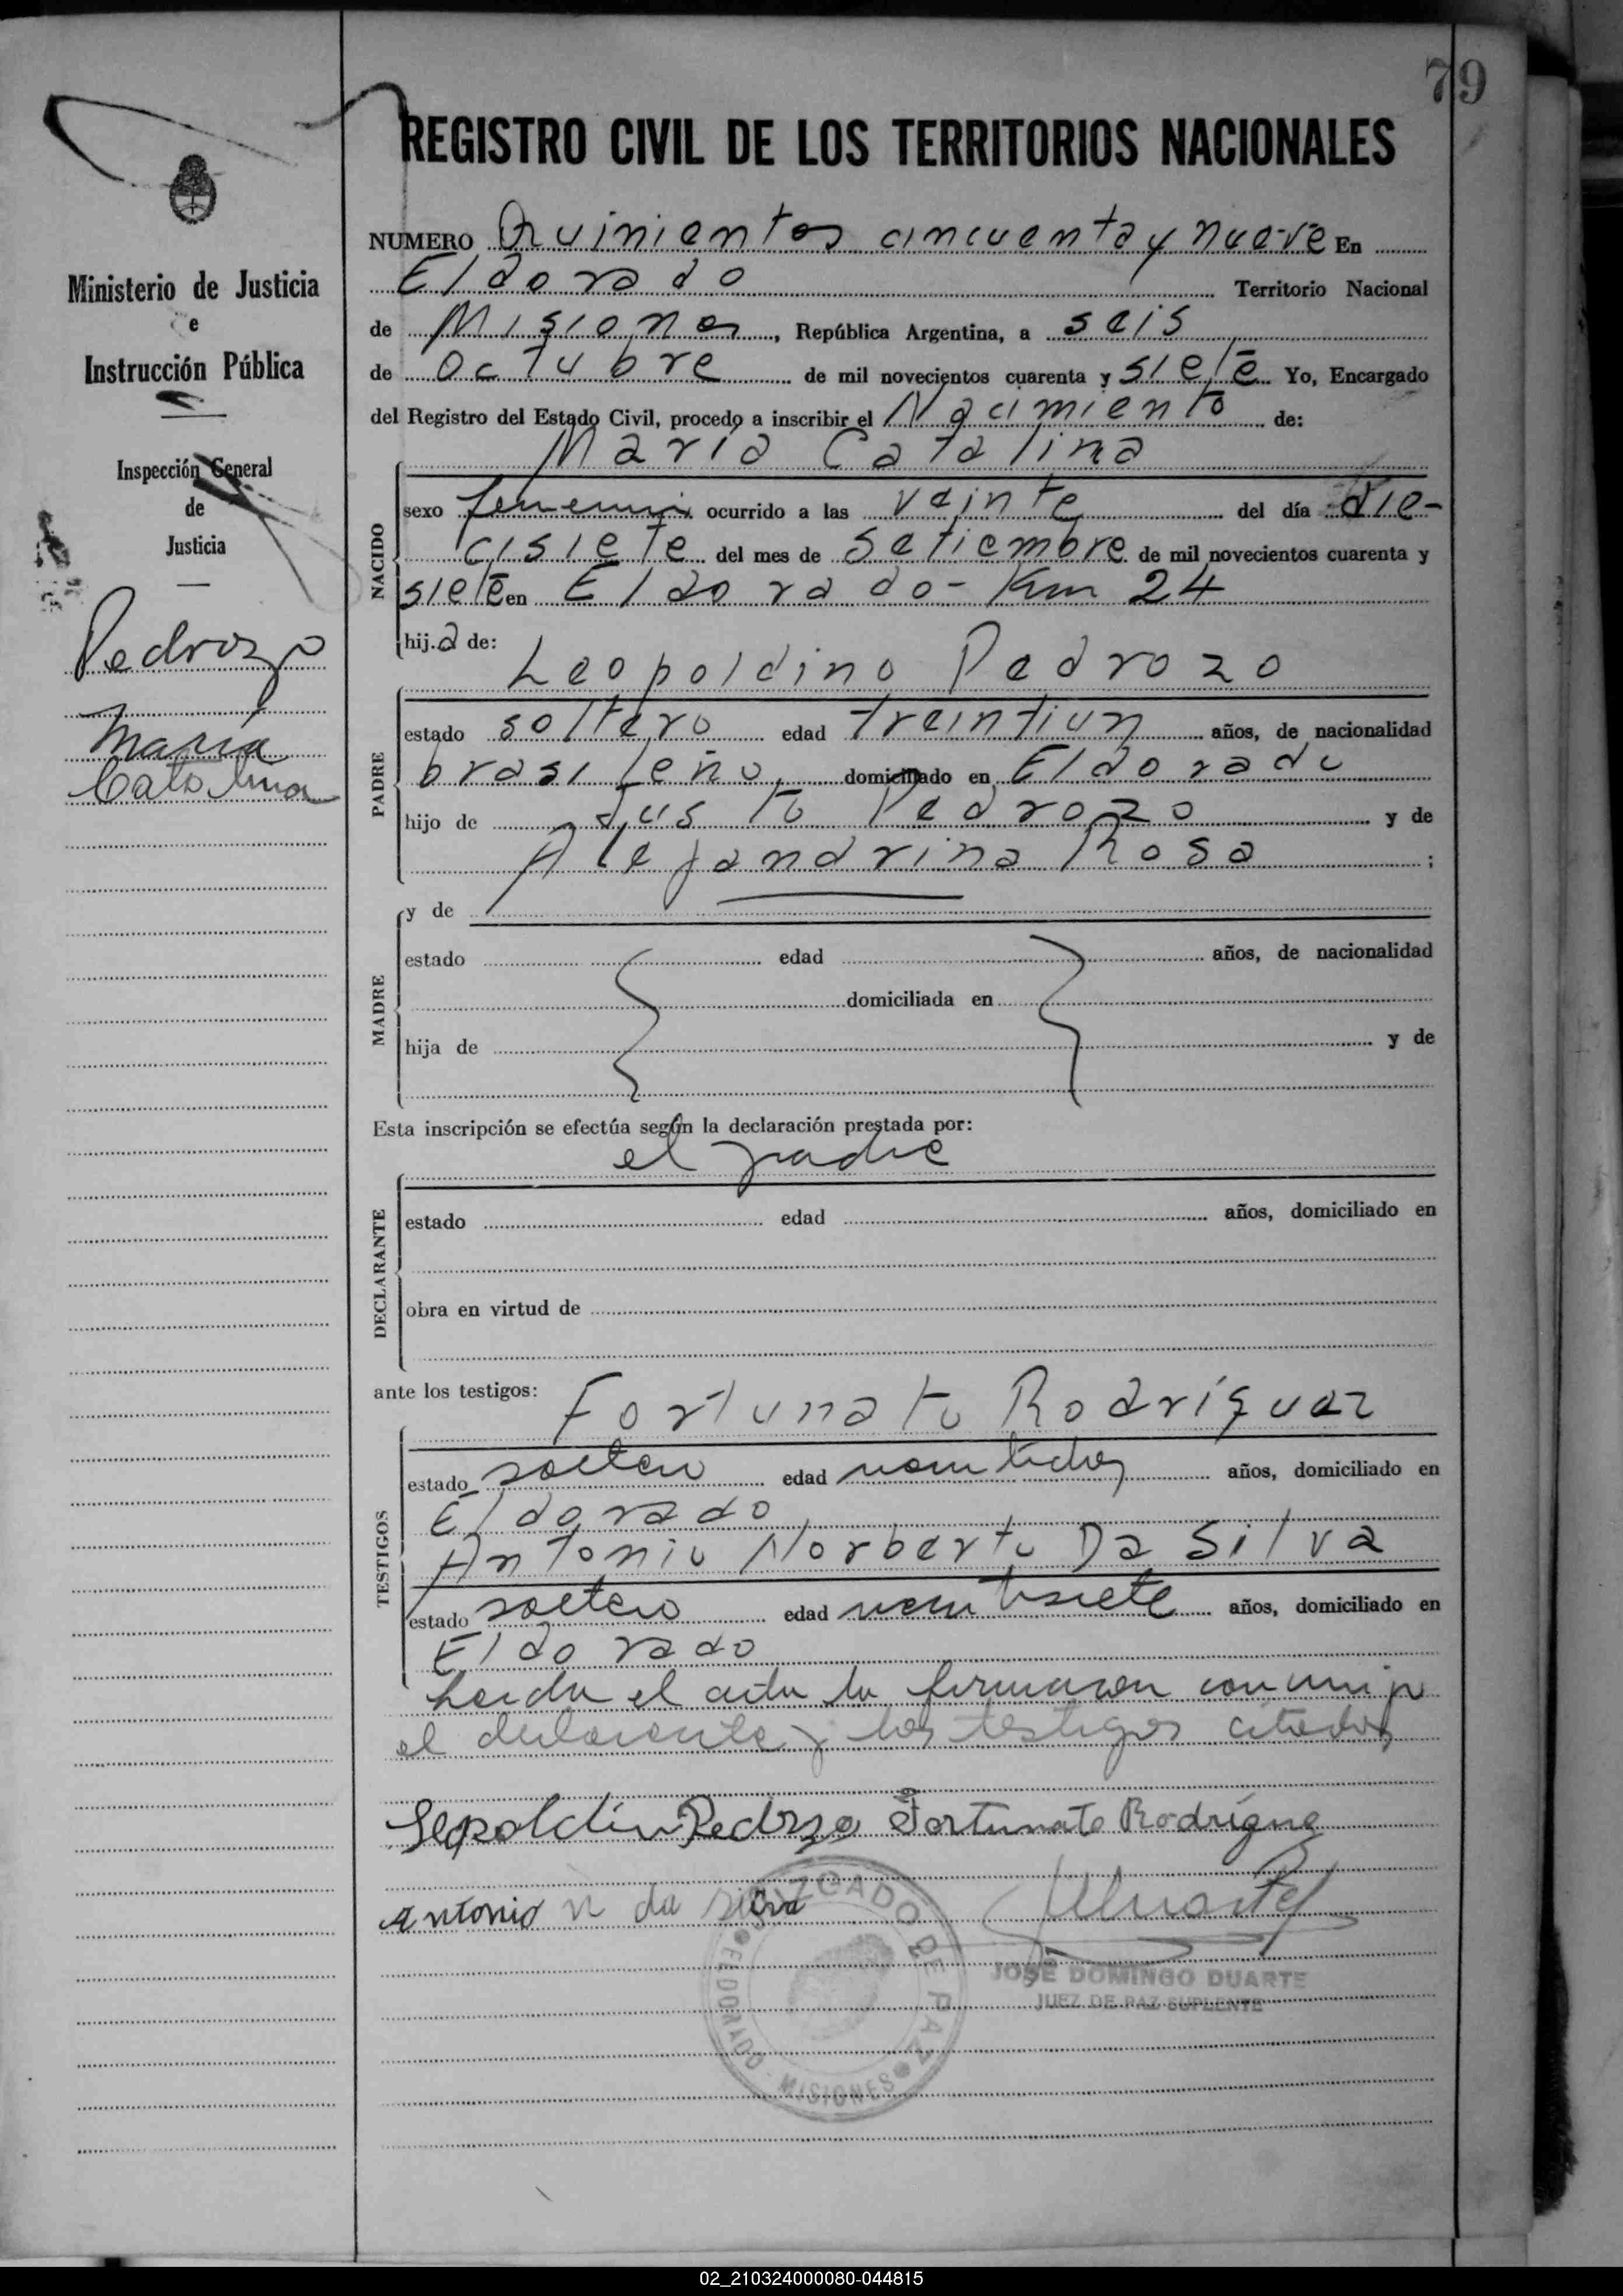 79
REGISTRO CIVIL DE LOS TERRITORIOS NACIONALES
Ministerio de Justicia
e
Instrucción Pública
Inspección General
de
Justicia
Pedrozo
María
Catalina
NUMERO Quinientos cincuenta y nueve En
Eldorado Territorio Nacional
de Misiones, República Argentina, a seis
de octubre de mil novecientos cuarenta y siete Yo, Encargado
del Registro del Estado Civil, procedo a inscribir el Nacimiento de:
María Catalina
NACIDO
sexo femenino ocurrido a las veinte del día die-
cisiete del mes de Setiembre de mil novecientos cuarenta y
siete en Eldorado - Km 24
hija de:
Leopoldino Pedrozo
PADRE
estado soltero edad treintiun años, de nacionalidad
brasileño, domiciliado en Eldorado
hijo de Justo Pedrozo y de
Alejandrina Rosa ;
MADRE
y de
estado edad años, de nacionalidad
domiciliada en
hija de y de
Esta inscripción se efectúa según la declaración prestada por:
el padre
DECLARANTE
estado edad años, domiciliado en
obra en virtud de
ante los testigos:
Fortunato Rodríguez
TESTIGOS
estado soltero edad años, domiciliado en
Eldorado
Antonio Norberto Da Silva
estado soltero edad veintisiete años, domiciliado en
Eldorado
Leida el acta la firmaron conmigo
el declarante y los testigos citados
Leopoldino Pedrozo Fortunato Rodrigue
Antonio n da silva
JUZGADO DE PAZ
ELDORADO - MISIONES
JOSÉ DOMINGO DUARTE
JUEZ DE PAZ SUPLENTE
02_210324000080-044815